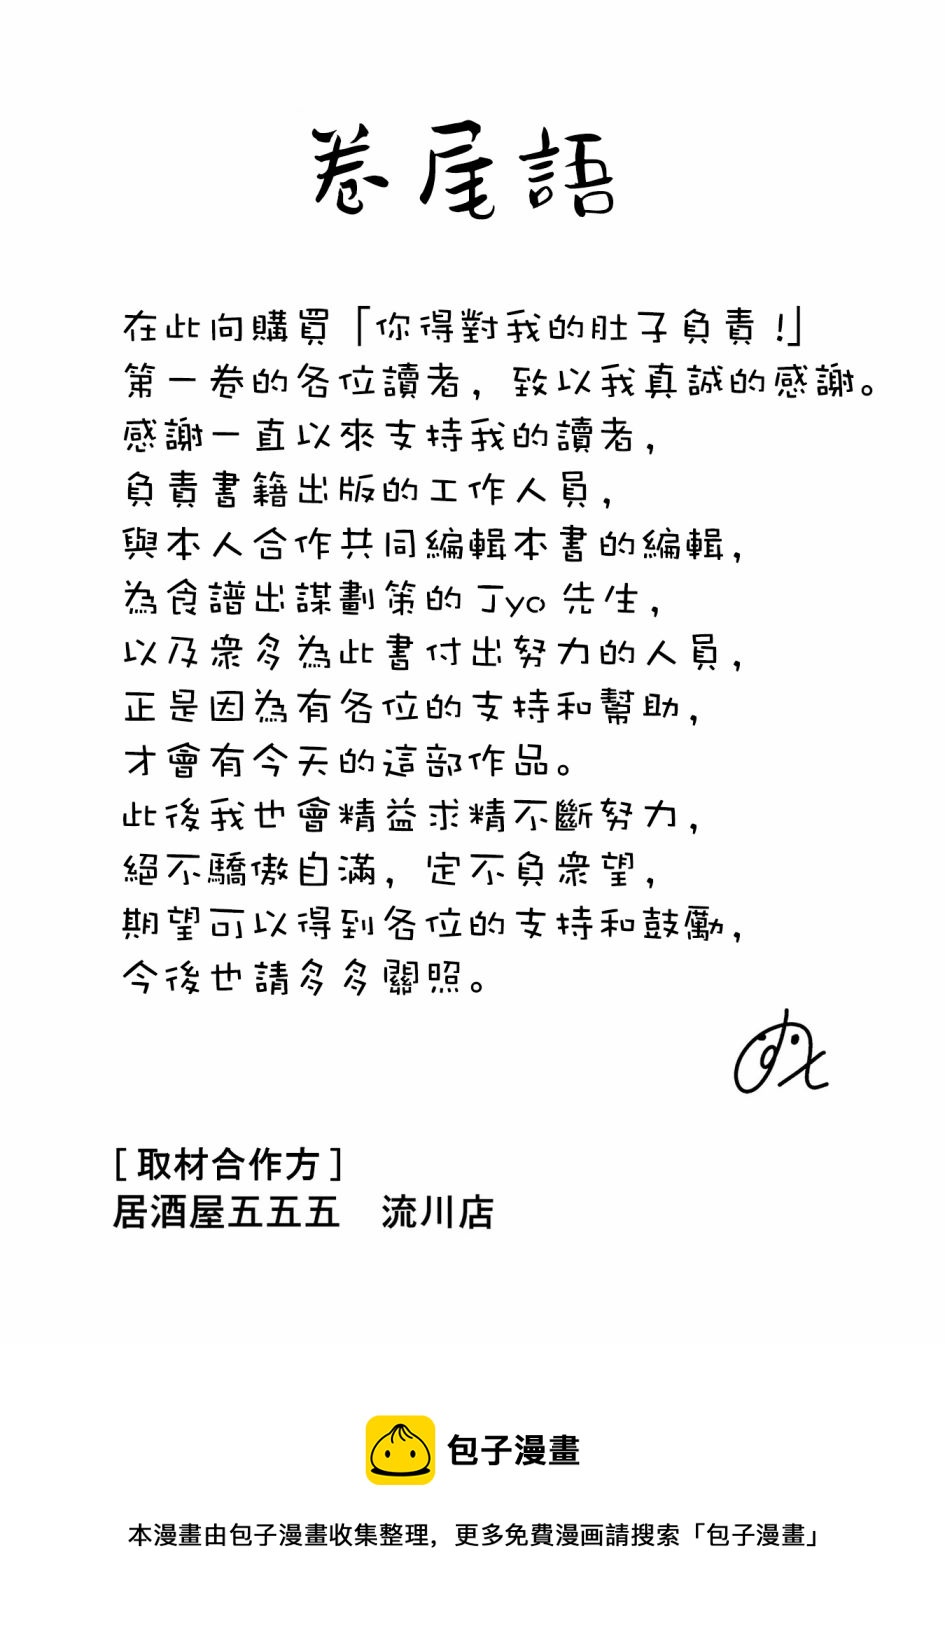 卷尾語
在此向購買「你得對我的肚子負責！」
第一卷的各位讀者，致以我真誠的感謝。
感謝一直以來支持我的讀者，
負責書籍出版的工作人員，
與本人合作共同編輯本書的編輯，
為食譜出謀劃策的Jyo先生，
以及衆多為此書付出努力的人員，
正是因為有各位的支持和幫助，
才會有今天的這部作品。
此後我也會精益求精不斷努力，
絕不驕傲自滿，定不負衆望，
期望可以得到各位的支持和鼓勵，
今後也請多多關照。
[取材合作方]
居酒屋五五五　流川店
包子漫畫
本漫畫由包子漫畫收集整理，更多免費漫画請搜索「包子漫畫」